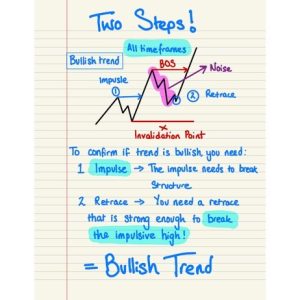 Two Steps!
All timeframes
Bullish trend
BOS
Noise
Impulse
1
2 Retrace
x
Invalidation Point
To confirm if trend is bullish, you need:
1 Impulse → The impulse needs to break
structure.
2 Retrace → You need a retrace
that is strong enough to break
the impulsive high!
= Bullish Trend